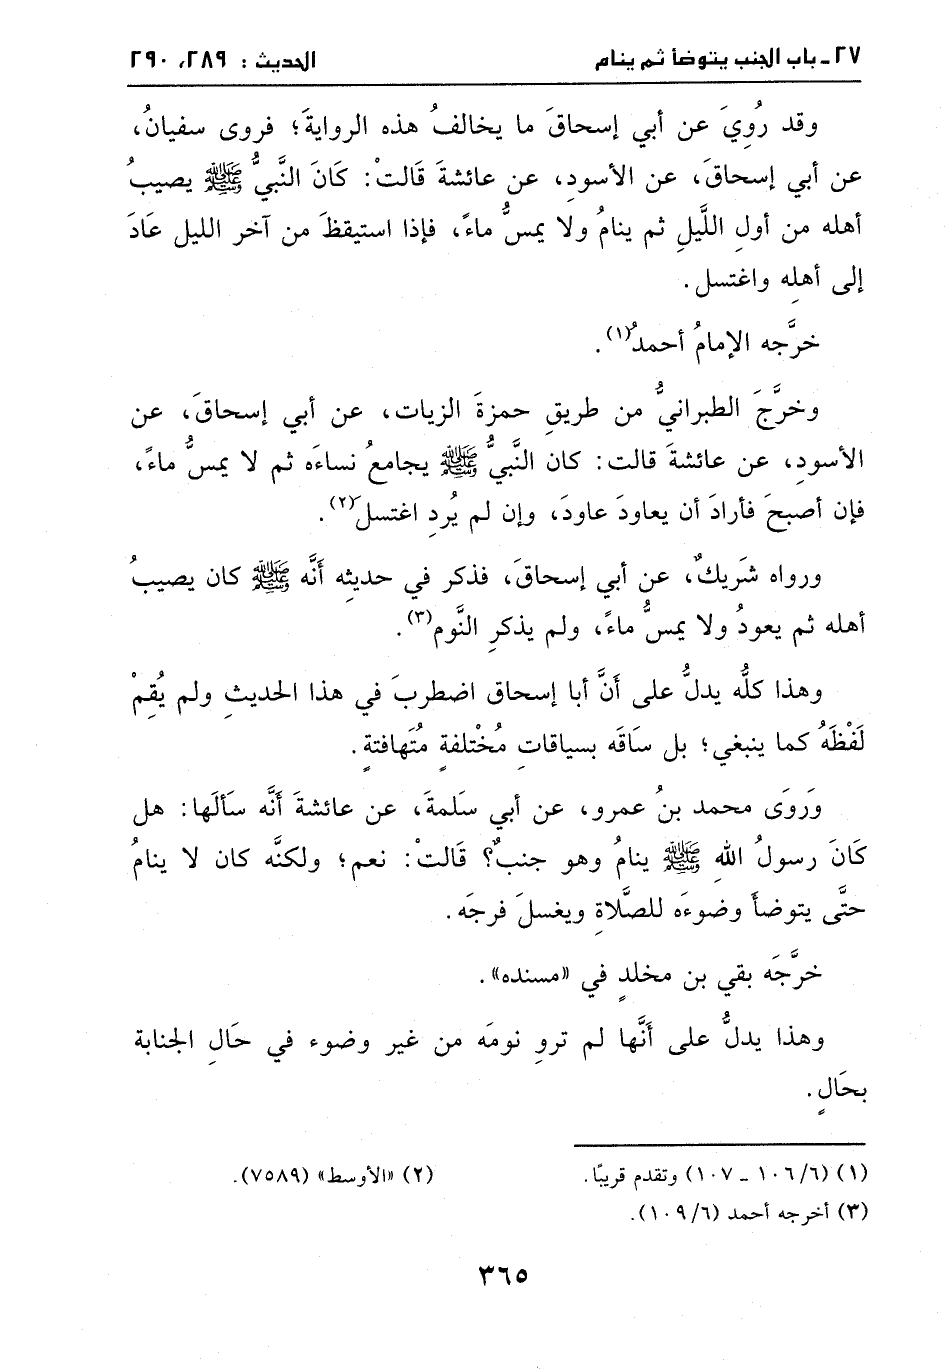 ٢٧ - باب الجنب يتوضأ ثم ينام الحديث : ٢٨٩، ٢٩٠
وقد رُوِيَ عن أبي إسحاقَ ما يخالفُ هذه الروايةَ؛ فروى سفيانُ،
عن أبي إسحاقَ، عن الأسودِ، عن عائشةَ قالتْ: كَانَ النَّبيُّ ﷺ يصيبُ
أهله من أولِ اللَّيلِ ثم ينامُ ولا يمسُّ ماءً، فإذا استيقظَ من آخر الليل عَادَ
إلى أهلِه واغتسل.
خرَّجه الإمامُ أحمدُ(١).
وخرَّجَ الطبرانيُّ من طريقِ حمزةَ الزيات، عن أبي إسحاقَ، عن
الأسودِ، عن عائشةَ قالت: كان النَّبيُّ ﷺ يجامعُ نساءَه ثم لا يمسُّ ماءً،
فإن أصبحَ فأرادَ أن يعاودَ عاودَ، وإن لم يُردِ اغتسلَ(٢).
ورواه شَريكٌ، عن أبي إسحاقَ، فذكر في حديثِه أنَّه ﷺ كان يصيبُ
أهله ثم يعودُ ولا يمسُّ ماءً، ولم يذكرِ النَّوم(٣).
وهذا كلُّه يدلُّ على أنَّ أبا إسحاق اضطربَ في هذا الحديثِ ولم يُقِمْ
لَفْظَهُ كما ينبغي؛ بل سَاقَه بسياقاتٍ مُخْتلفةٍ مُتَهافتةٍ.
وَروَى محمد بنُ عمرو، عن أبي سَلمةَ، عن عائشةَ أنَّه سَألَها: هل
كَانَ رسولُ اللهِ ﷺ ينامُ وهو جنبٌ؟ قَالتْ: نعم؛ ولكنَّه كان لا ينامُ
حتَّى يتوضأَ وضوءَه للصَّلاةِ ويغسلَ فرجَه.
خرَّجَه بقي بن مخلدٍ في «مسنده».
وهذا يدلُّ على أنَّها لم تروِ نومَه من غير وضوء في حَالِ الجنابة
بحَالٍ.
(١) (٦/ ١٠٦ - ١٠٧) وتقدم قريبًا. (٢) «الأوسط» (٧٥٨٩).
(٣) أخرجه أحمد (٦/ ١٠٩).
٣٦٥